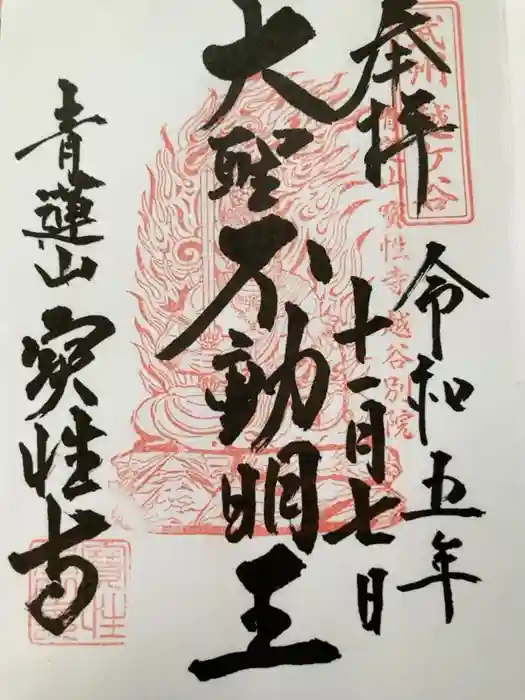 奉拝
武州 越ヶ谷
青蓮山寳性寺越谷別院
令和五年
十一月七日
大聖不動明王
青蓮山
寳性寺